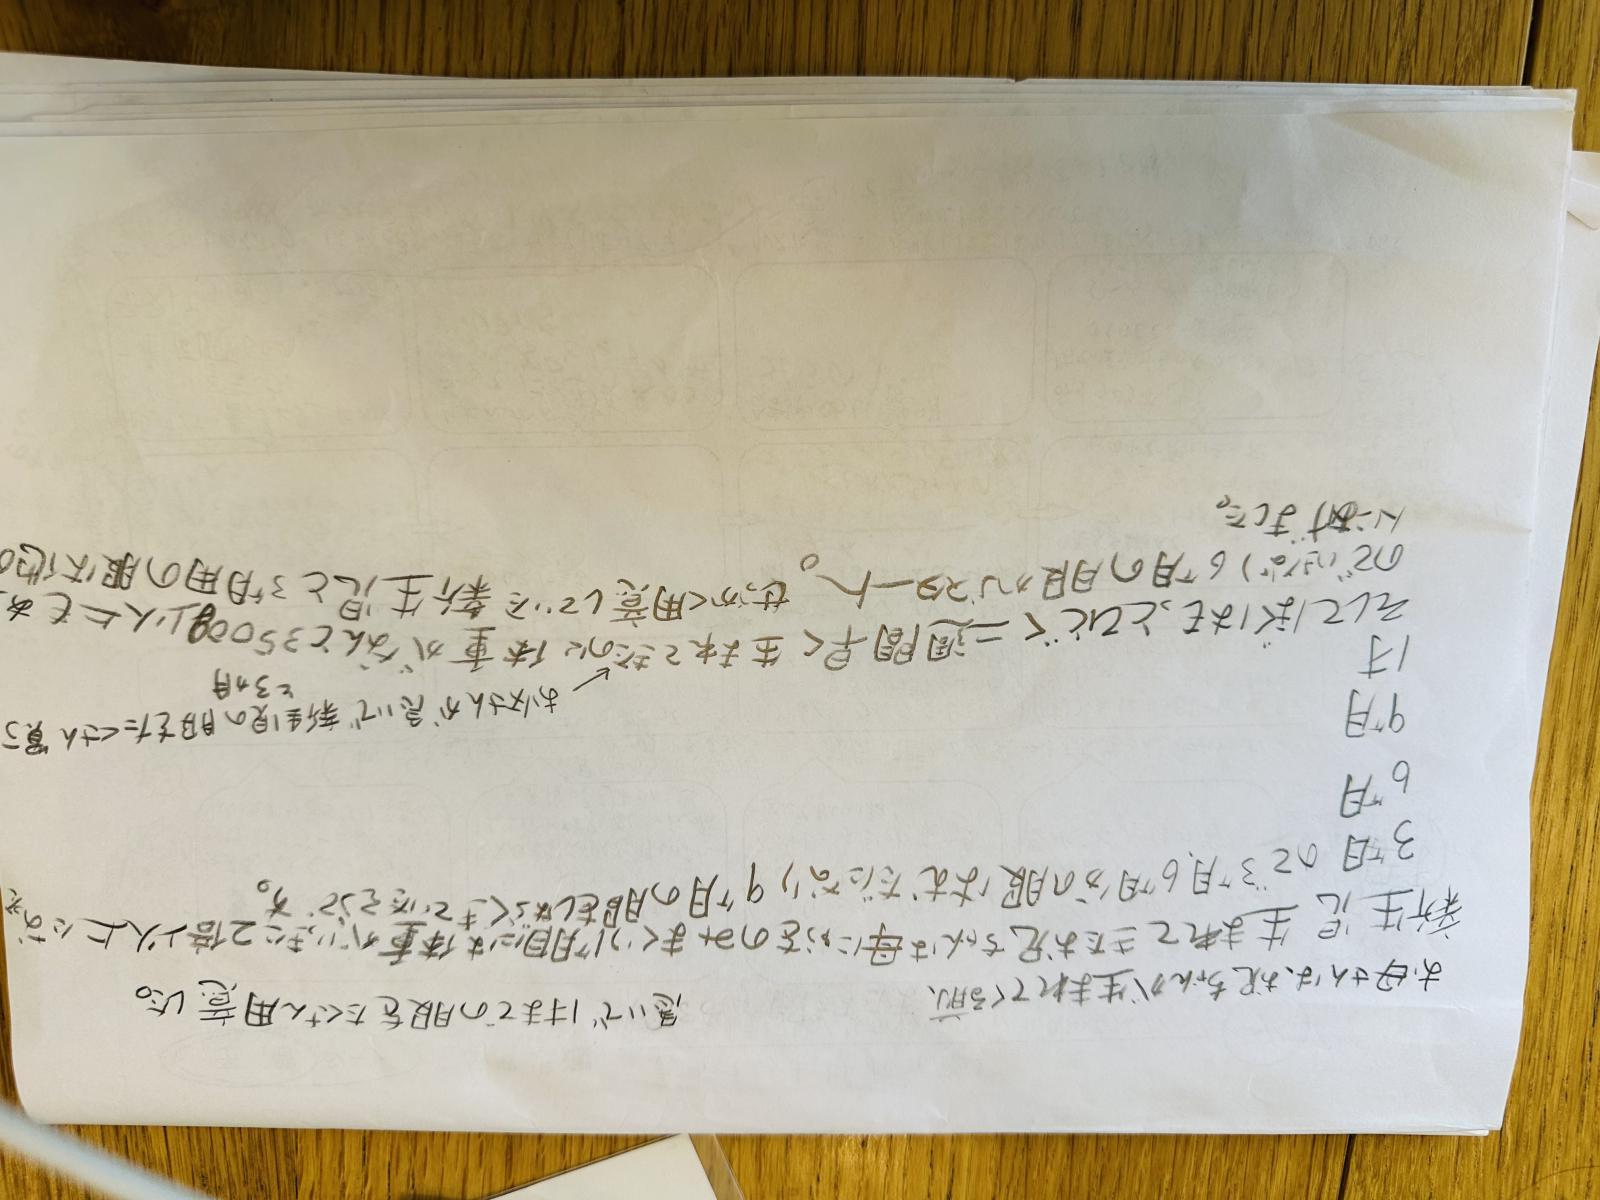 お母さんは、お兄ちゃんが生まれてくる前、
急いで1才までの服をたくさん用意した。
新生児 生まれてきたお兄ちゃんは母にゅうをのみまくり1ヶ月目には体重がいっきに2倍以人上になえ
3ヶ月 ので3ヶ月、6ヶ月分の服はむだになり9ヶ月の服をしばらくきていたそうです。
6ヶ月
9ヶ月
お父さんが急いで新生児の服をたくさん買っ
と3ヵ月
1才
そしてぼくはもっとひどく二週間早く生まれてきたのに体重がなんと3500g以人上もあ
のでいきなり6ヶ月の服からスタート。せっかく用意していた新生児と3ヶ月用の服は他の
人にあげました。